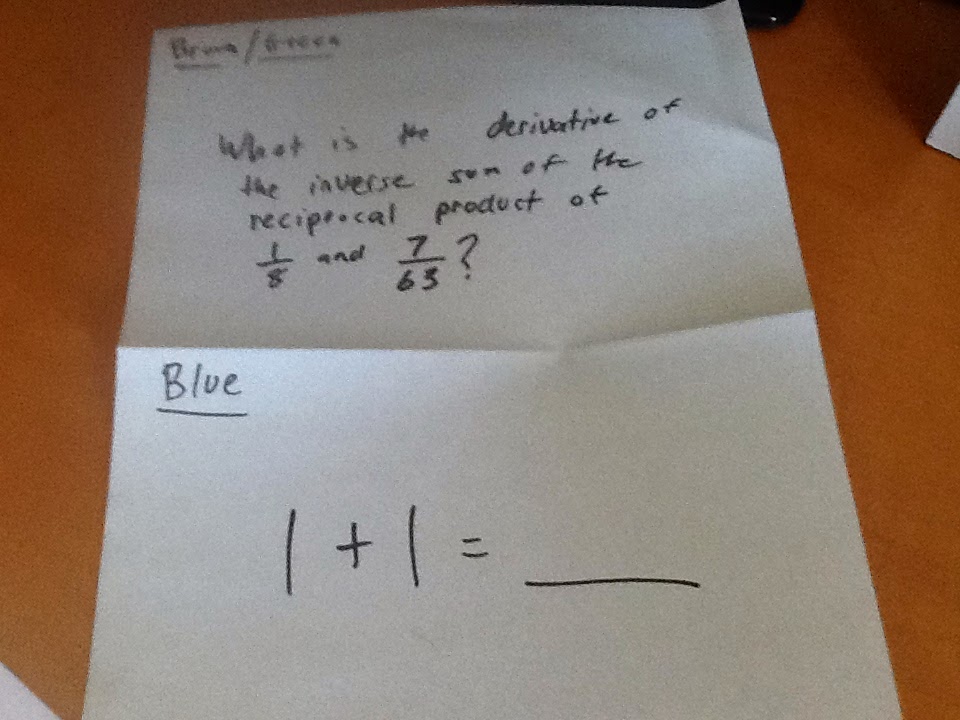 Brown/Green
What is the derivative of
the inverse sum of the
reciprocal product of
1/8 and 7/63?
Blue
1 + 1 = ____